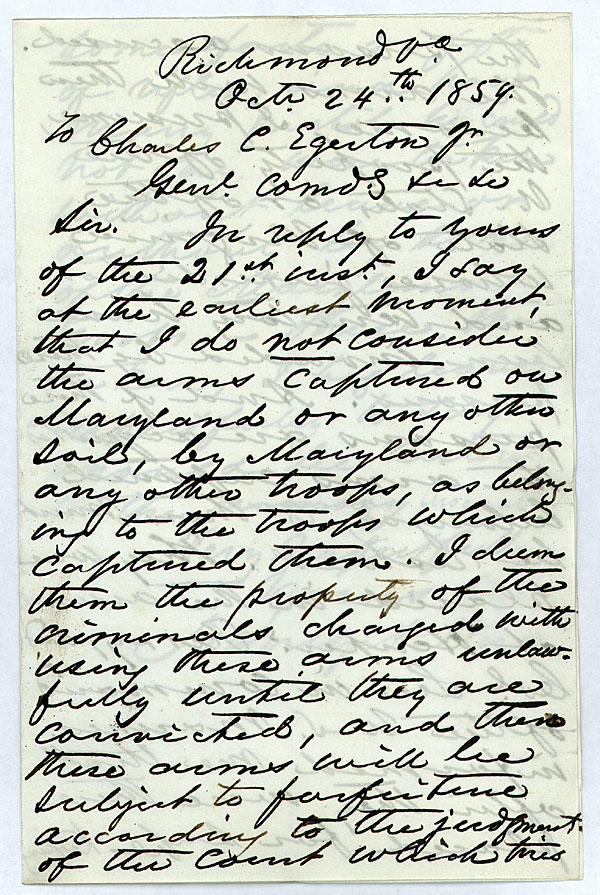 Richmond Va
Octr. 24.th 1859.
To Charles C. Egerton Jr.
Genl. Comd.g &c &c
Sir. In reply to yours
of the 21st. inst., I say
at the earliest moment,
that I do not consider
the arms captured on
Maryland or any other
soil, by Maryland or
any other troops, as belong-
ing to the troops which
captured them. I deem
them the property of the
criminals charged with
using these arms unlaw-
fully until they are
convicted, and then
these arms will be
subject to forfeiture
according to the judgment
of the Court which tries